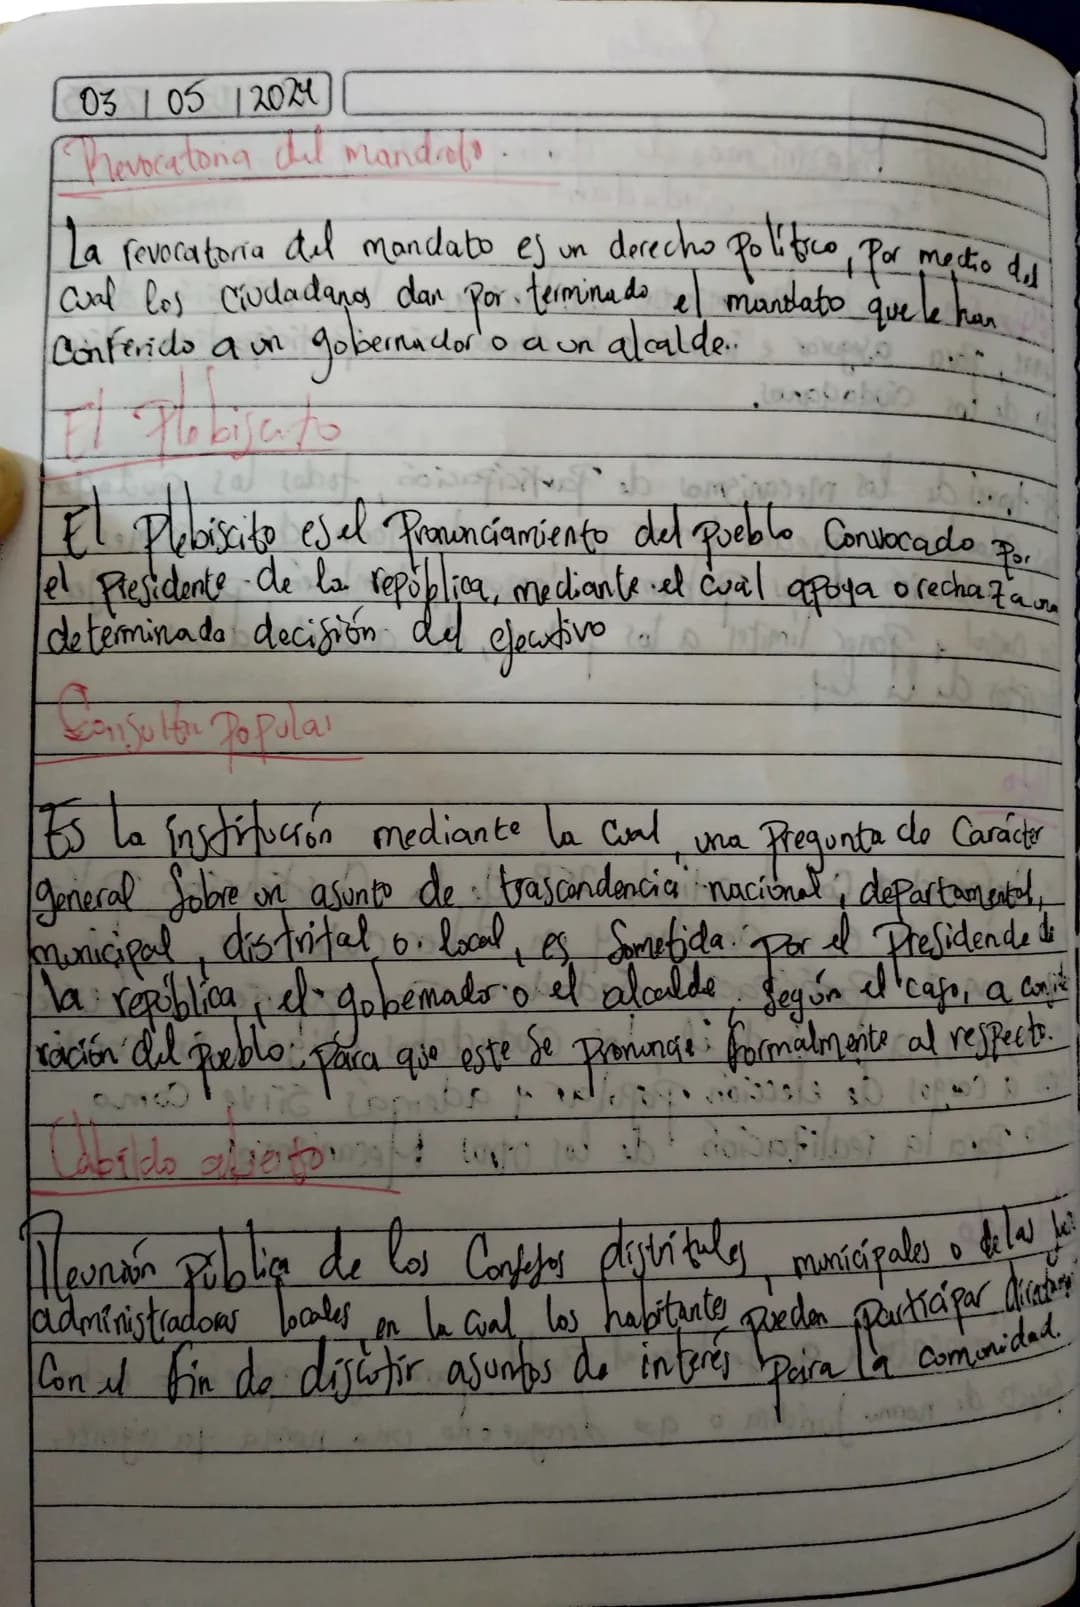 03 | 05 | 2024
Revocatoria del mandato
La revocatoria del mandato es un derecho Político, Por medio del
cual los ciudadanos dan por terminado el mandato que le han
Conferido a un gobernador o a un alcalde..
El Plebiscito
El Plebiscito es el Pronunciamiento del pueblo Convocado Por
el Presidente de la república, mediante el cual apoya o rechaza una
determinada decisión del ejecutivo
Consulta Popular
Es la institución mediante la cual, una Pregunta de Carácter
general Sobre un asunto de trascendencia nacional, departamental,
municipal, distrital o local, es Sometida Por el Presidende de
la república, el gobernador o el alcalde Según el caso, a
ración del pueblo para que este Se pronuncie formalmente al respecto.
Cabildo abierto
Reunión Pública de los Consejos distritales, municipales o de las
administradoras locales, en la cual los habitantes pueden participar
Con el fin de discutir asuntos de interés para la comunidad.